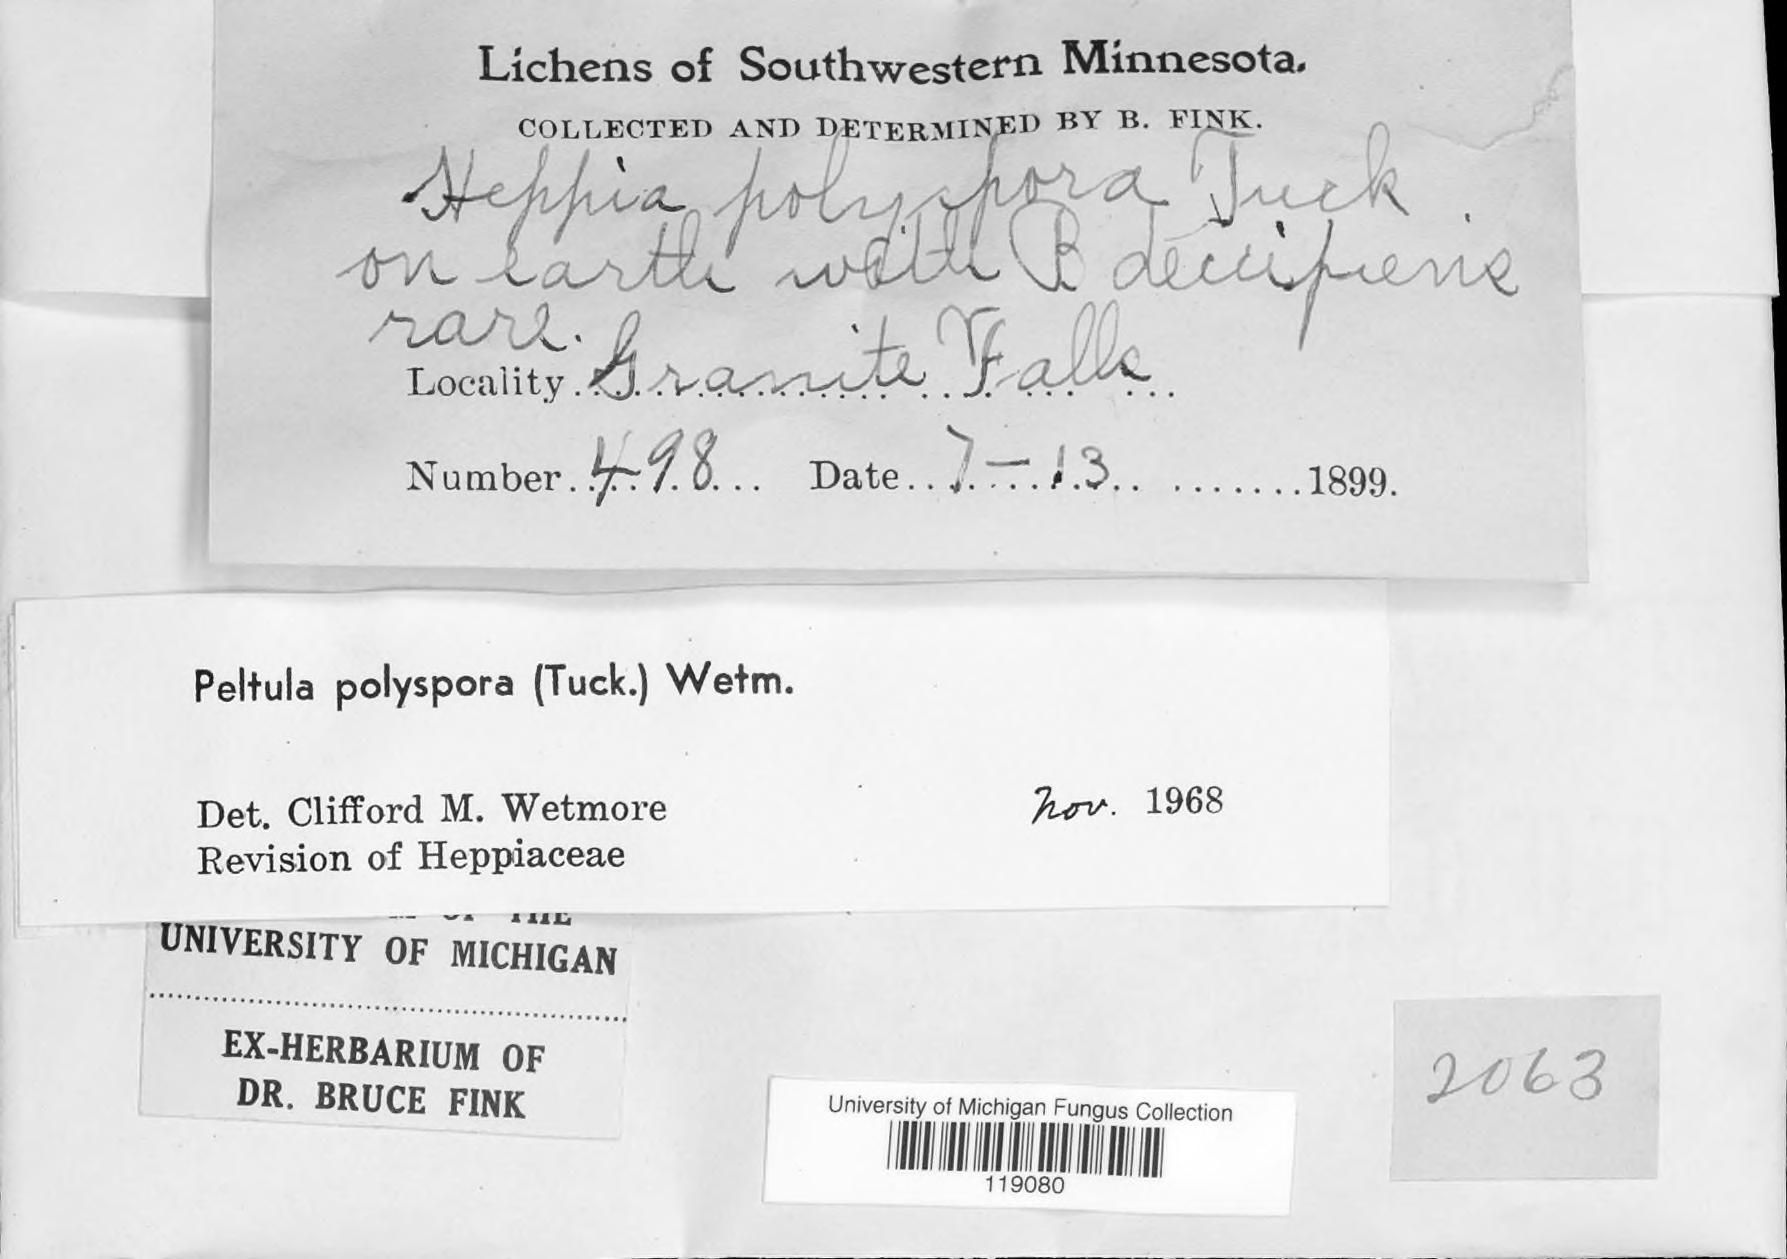 Lichens of Southwestern Minnesota.
COLLECTED AND DETERMINED BY B. FINK.
Heppia polyspora Tuck.
on earth with B decipiens
rare.
Locality. Granite Falls
Number. 498... Date.. 7-13.. ........1899.
Peltula polyspora (Tuck.) Wetm.
Det. Clifford M. Wetmore
Nov. 1968
Revision of Heppiaceae
OF THE
UNIVERSITY OF MICHIGAN
EX-HERBARIUM OF
DR. BRUCE FINK
University of Michigan Fungus Collection
119080
2063